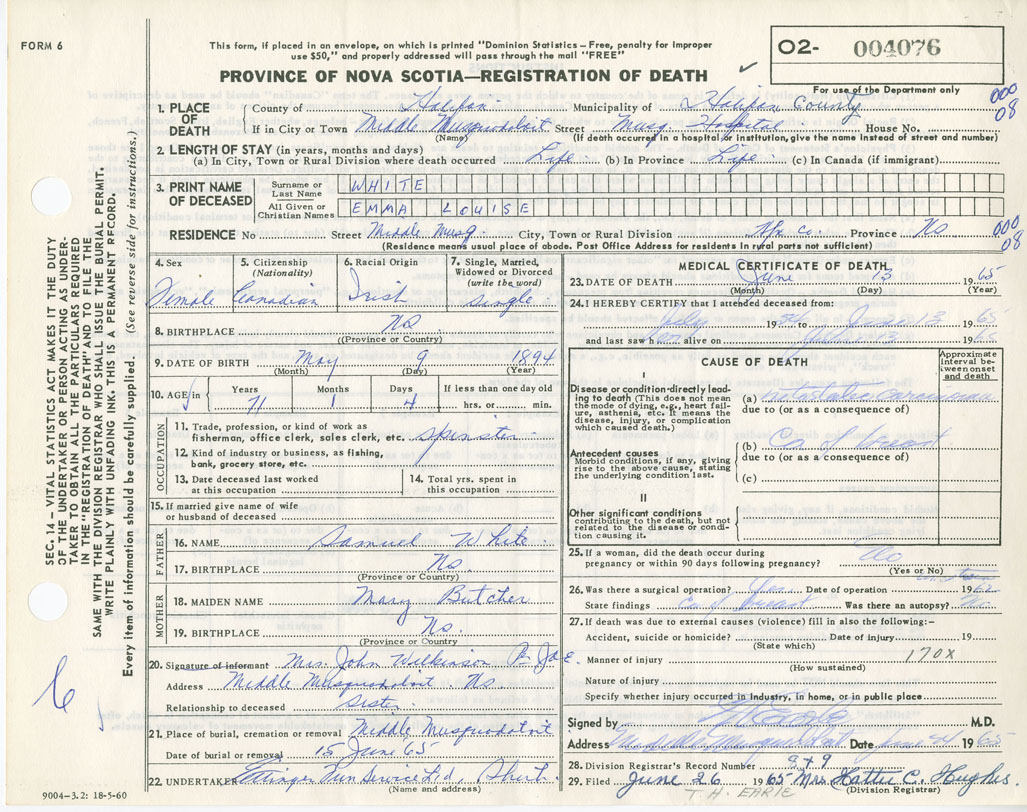 FORM 6
This form, if placed in an envelope, on which is printed "Dominion Statistics – Free, penalty for improper
use $50," and properly addressed will pass through the mail "FREE"
O2- 004076
PROVINCE OF NOVA SCOTIA—REGISTRATION OF DEATH
For use of the Department only
000
08
1. PLACE OF DEATH
County of Halifax Municipality of Halifax County
If in City or Town Middle Musquodoboit Street Musq. Hospital House No.
(Name) (If death occurred in a hospital or institution, give the name instead of street and number)
2. LENGTH OF STAY (in years, months and days)
(a) In City, Town or Rural Division where death occurred Life (b) In Province Life (c) In Canada (if immigrant)
3. PRINT NAME OF DECEASED
Surname or Last Name WHITE
All Given or Christian Names EMMA LOUISE
RESIDENCE No Street Middle Musq. City, Town or Rural Division Hfx Co. Province NS
000
08
(Residence means usual place of abode. Post Office Address for residents in rural parts not sufficient)
SEC. 14 – VITAL STATISTICS ACT MAKES IT THE DUTY
OF THE UNDERTAKER OR PERSON ACTING AS UNDER-
TAKER TO OBTAIN ALL THE PARTICULARS REQUIRED
IN THE "REGISTRATION OF DEATH" AND TO FILE THE
SAME WITH THE DIVISION REGISTRAR WHO SHALL ISSUE THE BURIAL PERMIT.
WRITE PLAINLY WITH UNFADING INK. THIS IS A PERMANENT RECORD.
Every item of information should be carefully supplied. (See reverse side for instructions.)
4. Sex Female
5. Citizenship (Nationality) Canadian
6. Racial Origin Irish
7. Single, Married, Widowed or Divorced (write the word) single
8. BIRTHPLACE NS
(Province or Country)
9. DATE OF BIRTH May 9 1894
(Month) (Day) (Year)
10. AGE Years 71 Months 1 Days 4 If less than one day old hrs. or min.
OCCUPATION
11. Trade, profession, or kind of work as
fisherman, office clerk, sales clerk, etc. Spinster
12. Kind of industry or business, as fishing,
bank, grocery store, etc.
13. Date deceased last worked at this occupation
14. Total yrs. spent in this occupation
15. If married give name of wife
or husband of deceased
FATHER
16. NAME Samuel White
17. BIRTHPLACE NS.
(Province or Country)
MOTHER
18. MAIDEN NAME Mary Butcher
19. BIRTHPLACE NS.
(Province or Country
20. Signature of informant Mrs. John Wilkinson
Address Middle Musquodoboit. NS
Relationship to deceased Sister
21. Place of burial, cremation or removal Middle Musquodoboit
Date of burial or removal 15 June 65
22. UNDERTAKER Ettinger Fun Service Ltd Shub.
(Name and address)
9004–3.2: 18-5-60
MEDICAL CERTIFICATE OF DEATH
23. DATE OF DEATH June 13 1965
(Month) (Day) (Year)
24. I HEREBY CERTIFY that I attended deceased from:
July 1954 to June 13 1965
and last saw her alive on June 13 1965
CAUSE OF DEATH
Approximate interval between onset and death
I
Disease or condition directly lead-
ing to death (This does not mean
the mode of dying, e.g., heart fail-
ure, asthenia, etc. It means the
disease, injury, or complication
which caused death.)
(a) metastatic carcinoma
due to (or as a consequence of)
Antecedent causes
Morbid conditions, if any, giving
rise to the above cause, stating
the underlying condition last.
(b) Ca of breast
due to (or as a consequence of)
(c)
II
Other significant conditions
contributing to the death, but not
related to the disease or condi-
tion causing it.
25. If a woman, did the death occur during
pregnancy or within 90 days following pregnancy? No
(Yes or No)
26. Was there a surgical operation? Yes Date of operation 1962
State findings ca of breast Was there an autopsy? No
27. If death was due to external causes (violence) fill in also the following:–
Accident, suicide or homicide? Date of injury 19
(State which)
Manner of injury 170X
(How sustained)
Nature of injury
Specify whether injury occurred in industry, in home, or in public place
Signed by M.D.
Address Middle Musquodoboit Date June 24 1965
28. Division Registrar's Record Number
29. Filed June 26 1965 Mrs Hattie C. Hughes.
(Division Registrar)
T. H. EARLE